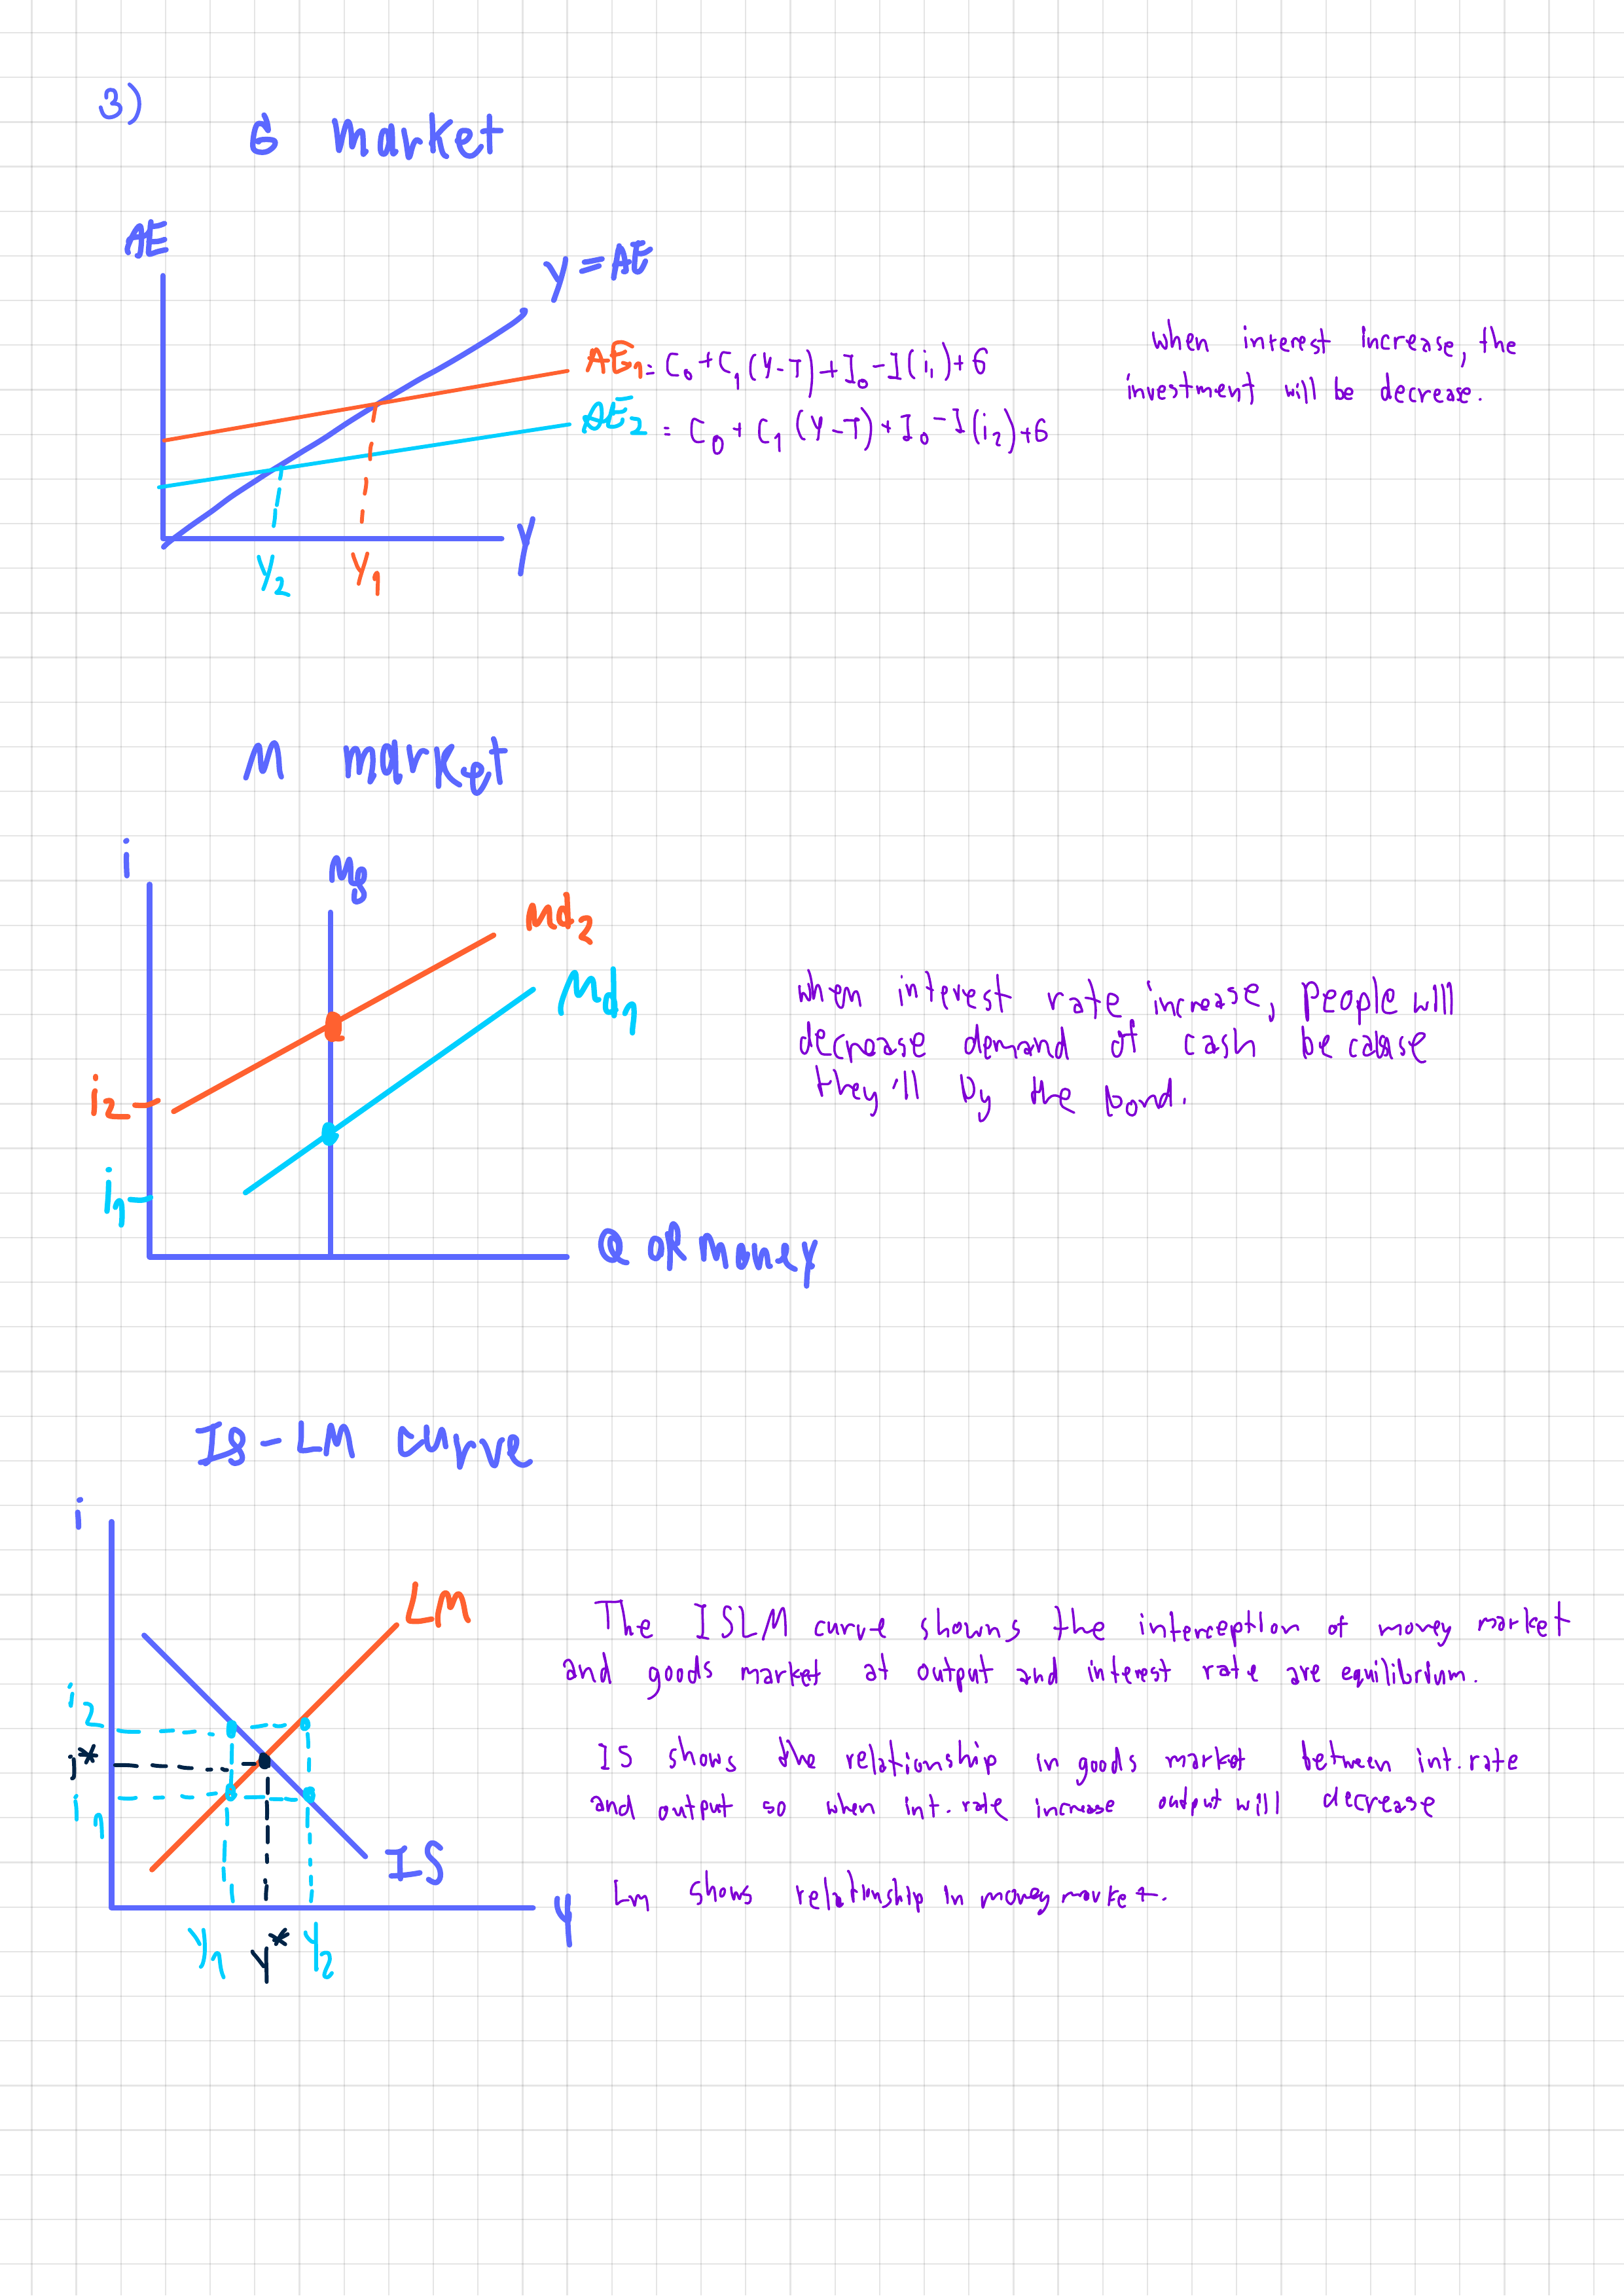 3)
G market
AE
Y = AE
AE₁ = C₀ + C₁ (Y-T) + I₀ - I(i₁) + G
AE₂ = C₀ + C₁ (Y-T) + I₀ - I(i₂) + G
when interest increase, the
investment will be decrease.
Y
Y₂ Y₁
M market
i
Ms
Md₂
Md₁
when interest rate increase, people will
decrease demand of cash because
they'll by the bond.
i₂
i₁
Q of money
IS-LM curve
i
LM
The ISLM curve showns the interception of money market
and goods market at output and interest rate are equilibrium.
i₂
i*
i₁
IS shows the relationship in goods market between int. rate
and output so when int. rate increase output will decrease
IS
Lm shows relationship in money market.
Y
Y₁ Y* Y₂